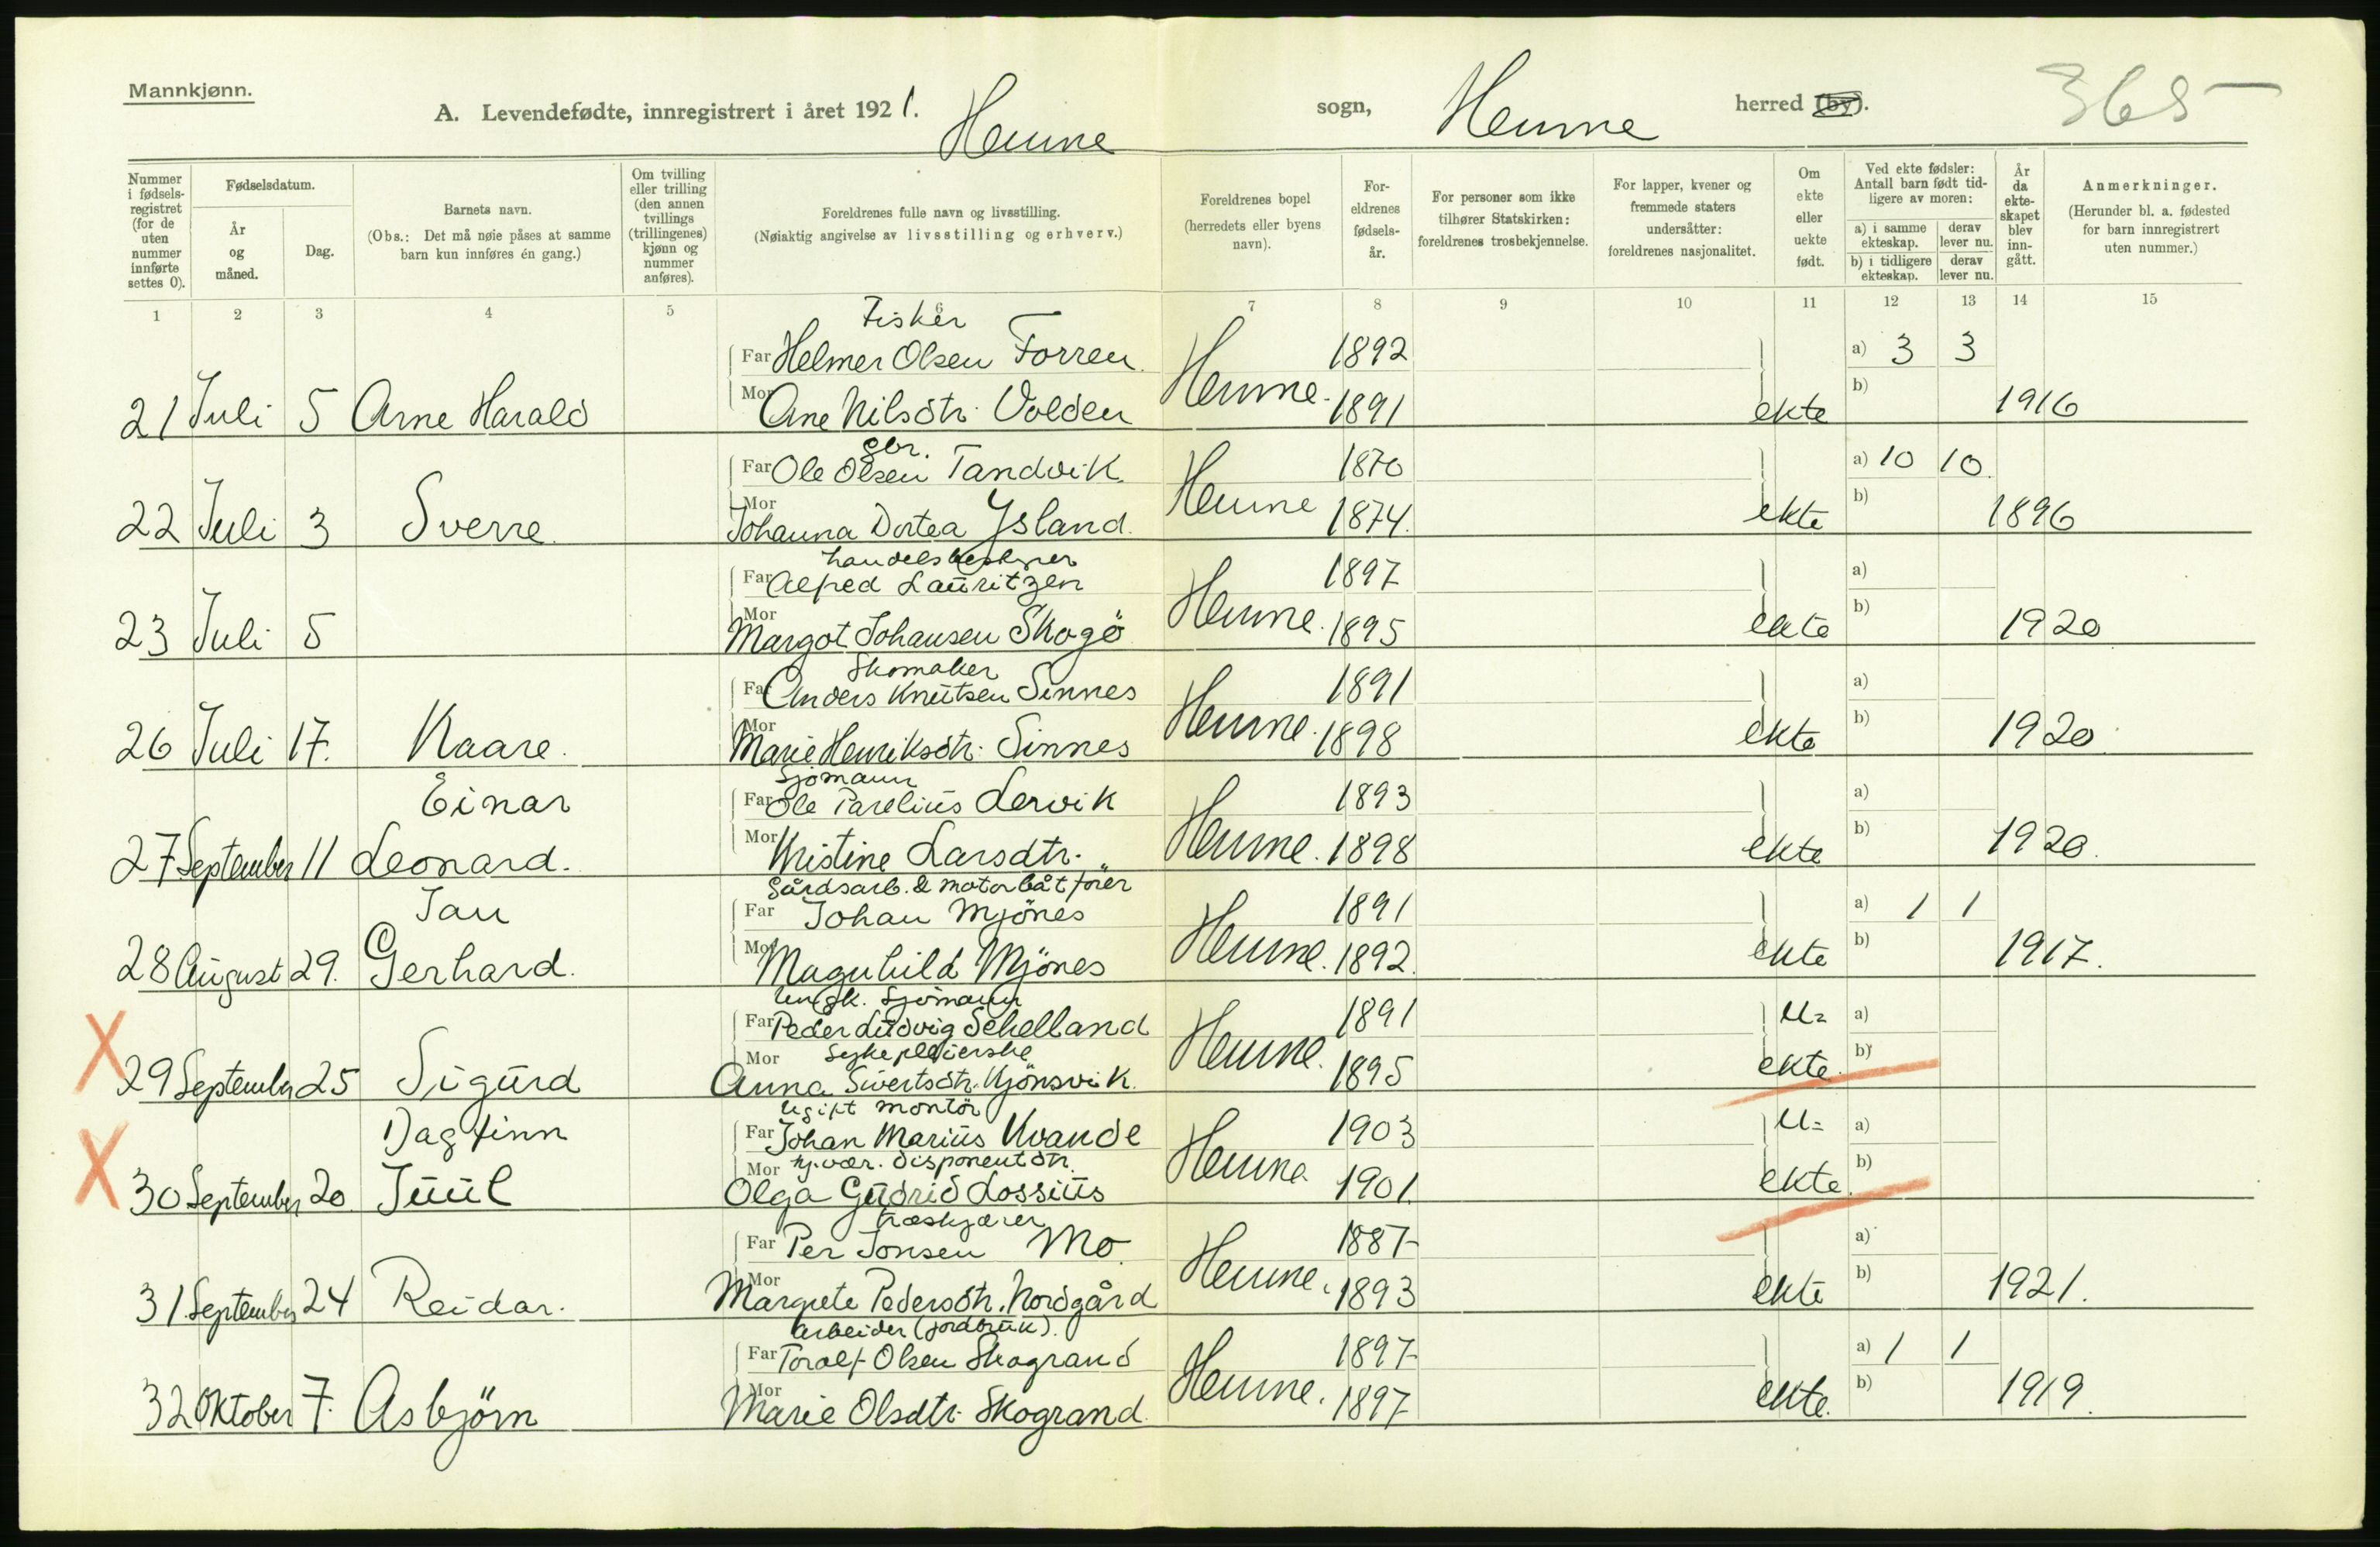 Mannkjønn.
A. Levendefødte, innregistrert i året 1921. Hemne sogn, Hemne herred (by). 365
Nummer i fødselsregistret (for de uten nummer innførte settes 0).
Fødselsdatum.
År og måned.
Dag.
Barnets navn.
(Obs.: Det må nøie påses at samme barn kun innføres én gang.)
Om tvilling eller trilling (den annen tvillings (trillingenes) kjønn og nummer anføres).
Foreldrenes fulle navn og livsstilling.
(Nøiaktig angivelse av livsstilling og erhverv.)
Foreldrenes bopel
(herredets eller byens navn).
Foreldrenes fødselsår.
For personer som ikke tilhører Statskirken: foreldrenes trosbekjennelse.
For lapper, kvener og fremmede staters undersåtter: foreldrenes nasjonalitet.
Om ekte eller uekte født.
Ved ekte fødsler: Antall barn født tidligere av moren:
a) i samme ekteskap. derav lever nu.
b) i tidligere ekteskap. derav lever nu.
År da ekteskapet blev inngått.
Anmerkninger.
(Herunder bl. a. fødested for barn innregistrert uten nummer.)
1 2 3 4 5 6 7 8 9 10 11 12 13 14 15
Fisker
Far Helmer Olsen Forren 1892 a) 3 3
21 Juli 5 Arne Harald Mor Ane Nilsdtr. Volden Hemne. 1891 ekte b) 1916
gbr.
Far Ole Olsen Tandvik 1870 a) 10 10.
22 Juli 3 Sverre Mor Johanna Dortea Ysland Hemne 1874. ekte b) 1896
handelsbestyrer
Far Alfred Lauritzen 1897 a)
23 Juli 5 Mor Margot Johansen Skogö Hemne. 1895 ekte b) 1920
Skomaker
Far Anders Knutsen Sinnes 1891 a)
26 Juli 17. Kaare. Mor Marie Henriksdtr. Sinnes Hemne. 1898 ekte b) 1920
Sjömann
Einar Far Ole Parelius Lervik 1893 a)
27 September 11 Leonard. Mor Kristine Larsdtr. " Hemne. 1898 ekte b) 1920.
Gårdsarb. & motorbåtförer
Jan Far Johan Mjönes 1891 a) 1 1
28 August 29. Gerhard. Mor Magnhild Mjönes Hemne. 1892. ekte b) 1917.
Ungk. Sjömann
Far Peder Ludvig Schelland 1891 U= a)
Sykepleierske
X 29 September 25 Sigurd Mor Anna Sivertsdtr. Kjönsvik. Hemne. 1895 ekte. b)
Ugift montör
Dagfinn Far Johan Marius Kvande 1903 U= a)
hj.vær. disponentdtr.
X 30 September 20 Juul Mor Olga Gudrid Lossius Hemne 1901. ekte. b)
træskjærer
Far Per Jonsen Mo. 1887 a)
31. September 24 Reidar. Mor Margrete Pedersdtr. Nordgård Hemne. 1893 ekte b) 1921.
Arbeider (jordbruk).
Far Toralf Olsen Skogrand 1897 a) 1 1
32 Oktober 7. Asbjörn Mor Marie Olsdtr. Skogrand. Hemne. 1897 ekte. b) 1919.